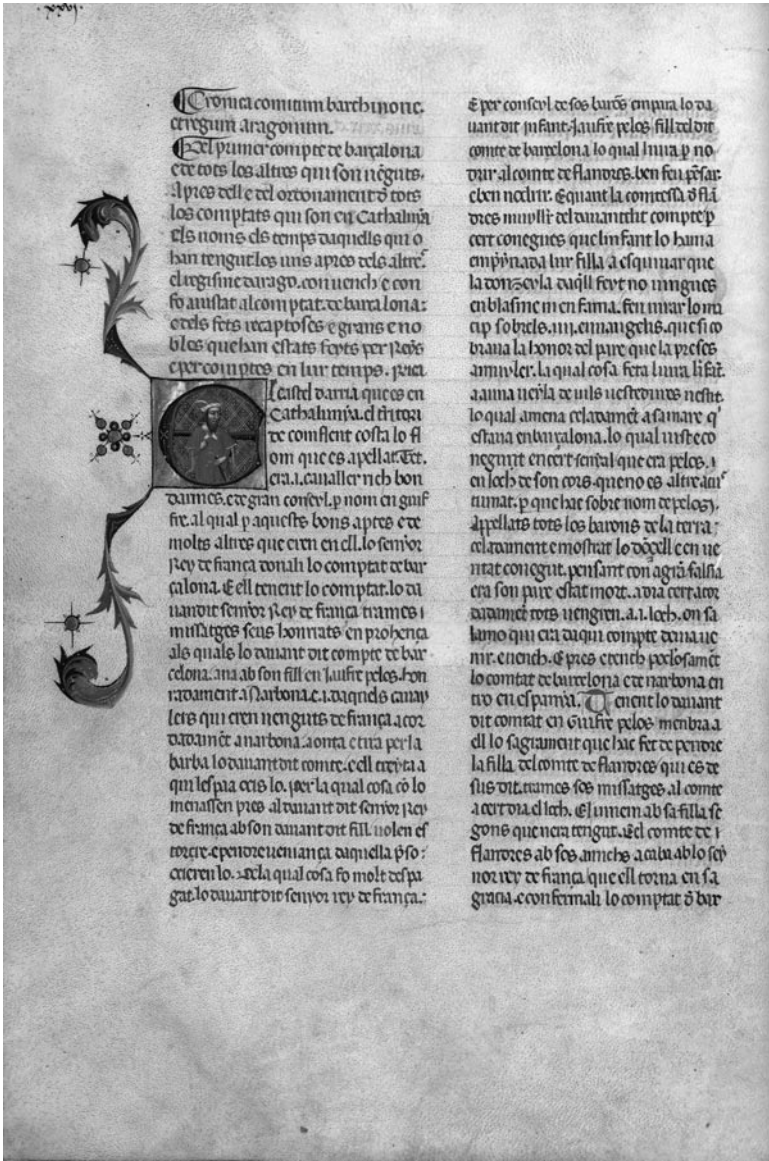 .lxxx.
Cronica comitum barchinone.
et regum aragonum.
Del primer compte de barçalona
e de tots los altres qui son uenguts.
apres dell e del ordonament d tots
los comptats qui son en Cathalunya
els noms els temps daquells qui o
han tengut los uns apres dels altres.
el regisme darago. con uench e con
fo aiustat al comptat. de barcalona:
e dels fets recaptoses e grans e no
bles que han estats feyts per Reys
e per comptes en lur temps.
E castel darria que es en
Cathalunya. el territori
de comflent costa lo fl
om que es apellat. Tet.
era .i. caualler rich bon
darmes. e de gran conseyl. p nom en guif
fre. al qual p aquests bons aptes e de
molts altres que eren en ell. lo senyor
Rey de frança donali lo comptat de bar
çalona. E ell tenent lo comptat. lo da
uandit senyor Rey de frança trames i
missatges seus honrats en prohença
als quals lo dauant dit compte de bar
celona. ana ab son fill en Jaufre pelos. hon
radament a Narbona. e .i. daquels cauay
lers qui eren uenguts de frança acor
dadamet a narbona. aonta e tira per la
barba lo dauant dit comte. e ell treyta a
qui lespaa ocis lo. per la qual cosa co lo
menassen pres al dauant dit senyor Rey
de frança ab son dauant dit fill. uolen es
torçre. e pendre ueniança daquella pso:
ocieren lo. De la qual cosa fo molt despa
gat. lo dauant dit senyor rey de frança.:
E per conseyl de sos baros empara lo da
uant dit infant. Jaufre pelos fill del dit
comte de barcelona lo qual liura p no
drir al comte de flandres. ben feu pesar.
e ben nodrir. E quant la comtessa d fla
dres muyller del dauantdit compte p
cert conegues que linfant lo hauia
emprynada lur filla a esquiuar que
la donzeyla daqll feyt no uingues
en blasme ni en fama. feu iurar lo ma
cip sobrels .iiii. euuangelis. que si co
braua la honor del pare que la preses
a muyler. la qual cosa feta liura lifat.
a una ueyla de uils uestedures uestit.
lo qual amena celadamet a sa mare q
estaua en barçalona. lo qual uist e co
negut en cert senyal que era pelos. i
en loch de son cors. que no es altre acus
tumat. p que hac sobre nom de pelos.
Appellats tots los barons de la terra:
celadament e mostrat lo doçell e en ue
ritat conegut. pensant con a gra falsia
era son pare estat mort. a dia cert acor
dadamet tots uengren. a .i. loch. on sa
lamo qui era daqui compte deuia ue
nir. e uench. E pres e tench poderosamet
lo comtat de barcelona e de narbona en
tro en espanya. Tenent lo dauant
dit comtat en Guifre pelos menbra a
ell lo sagrament que hac fet de pendre
la filla del comte de flandres qui es de
sus dit. trames sos missatges al comte
a cert dia e loch. El uinem ab sa filla se
gons que nera tengut. E el comte de i
flandres ab sos amichs acaba ab lo sey
nor rey de frança que ell torna en sa
gracia. e confermali lo comptat d bar